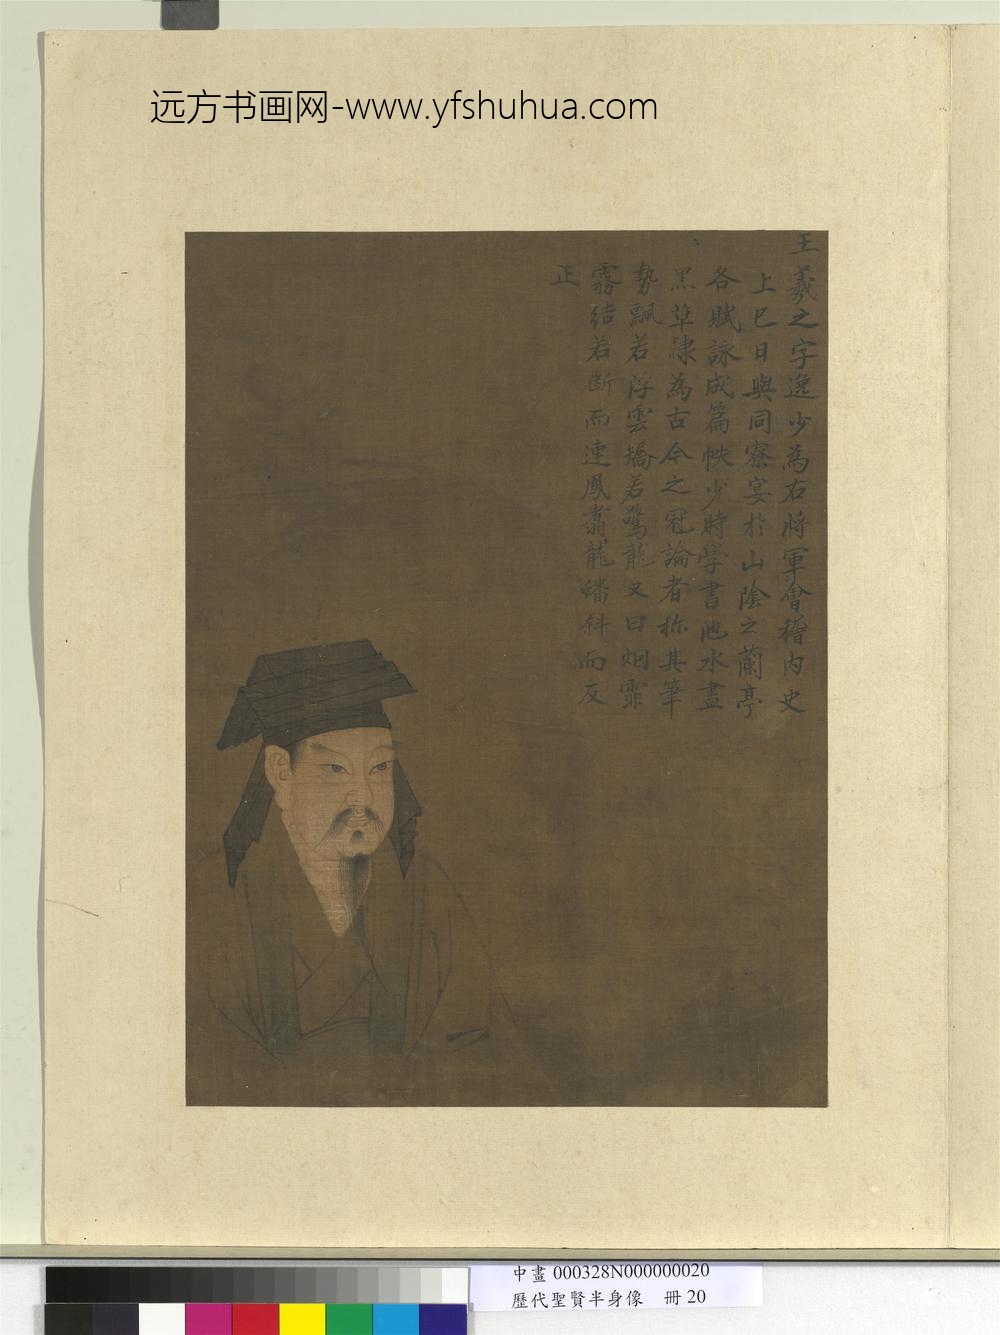 远方书画网-www.yfshuhua.com
王羲之字逸少為右將軍會稽内史
上巳日與同寮宴於山陰之蘭亭
各賦詠成篇帙少時學書池水盡
黑草隷為古今之冠論者称其筆
勢飄若浮雲矯若驚龍又曰烟霏
霧結若断而連鳳翥龍蟠斜而反
正
中畫 000328N000000020
歷代聖賢半身像 冊 20